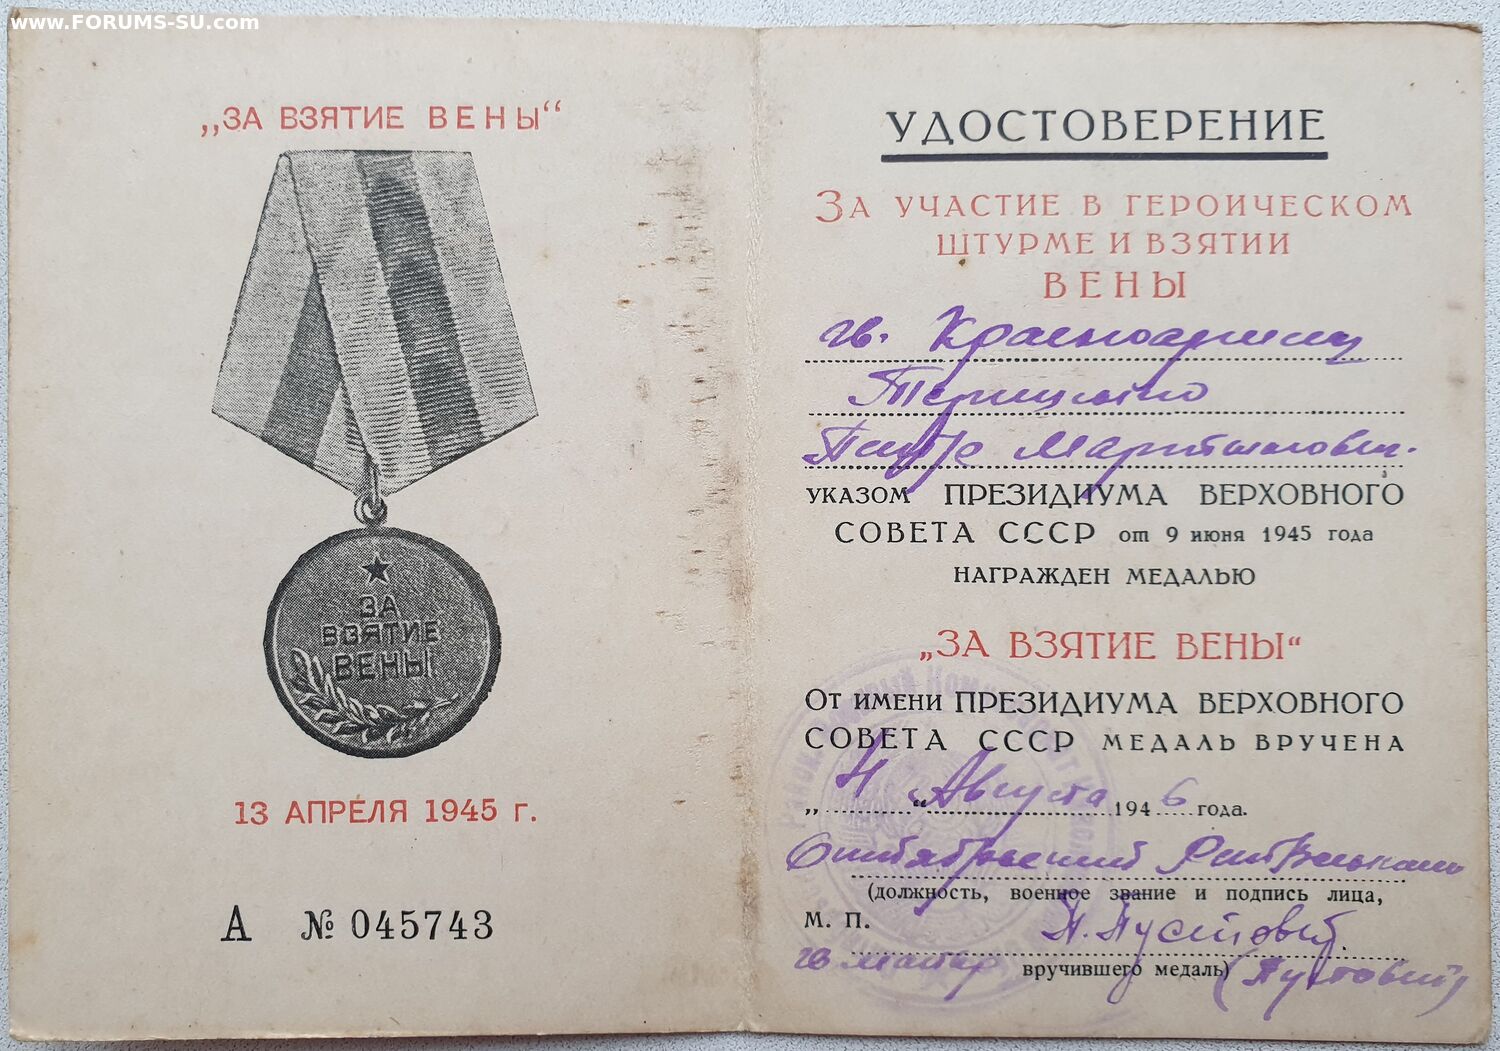 www.FORUMS-SU.com
„ЗА ВЗЯТИЕ ВЕНЫ“
ЗА
ВЗЯТИЕ
ВЕНЫ
13 АПРЕЛЯ 1945 г.
А № 045743
УДОСТОВЕРЕНИЕ
ЗА УЧАСТИЕ В ГЕРОИЧЕСКОМ
ШТУРМЕ И ВЗЯТИИ
ВЕНЫ
гв. Красноармеец
УКАЗОМ ПРЕЗИДИУМА ВЕРХОВНОГО
СОВЕТА СССР от 9 июня 1945 года
НАГРАЖДЕН МЕДАЛЬЮ
„ЗА ВЗЯТИЕ ВЕНЫ“
ОТ ИМЕНИ ПРЕЗИДИУМА ВЕРХОВНОГО
СОВЕТА СССР МЕДАЛЬ ВРУЧЕНА
„4“ Августа 1946 года.
Октябрьский Райвоенком
(должность, военное звание и подпись лица,
М. П.
гв майор вручившего медаль)